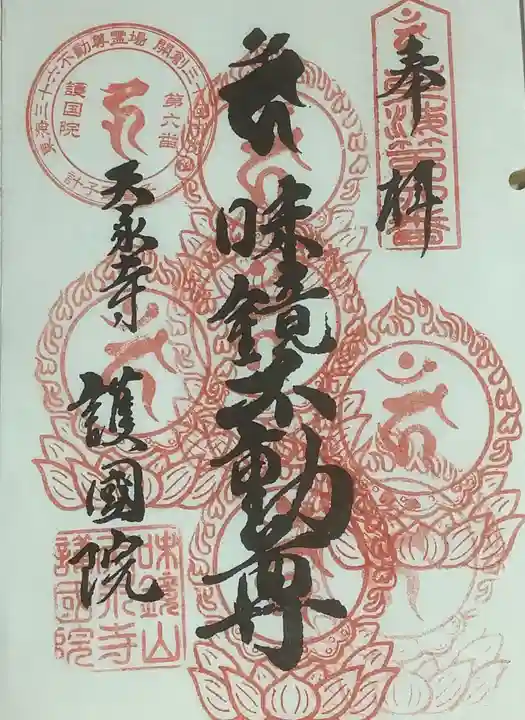 奉拝
味鏡不動尊
天永寺
護國院
東海三十六不動尊霊場
開創三十
第六番
護国院
味鏡山
天永寺
護國院